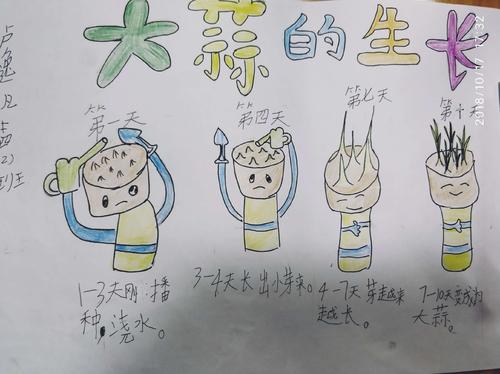 大蒜的生长
2018/10/17 17:32
第一天
第四天
第七天
第十天
1-3天刚播
种,浇水。
3-4天长出小芽来。
4-7天芽越来
越长。
7-10天变成为
大蒜。